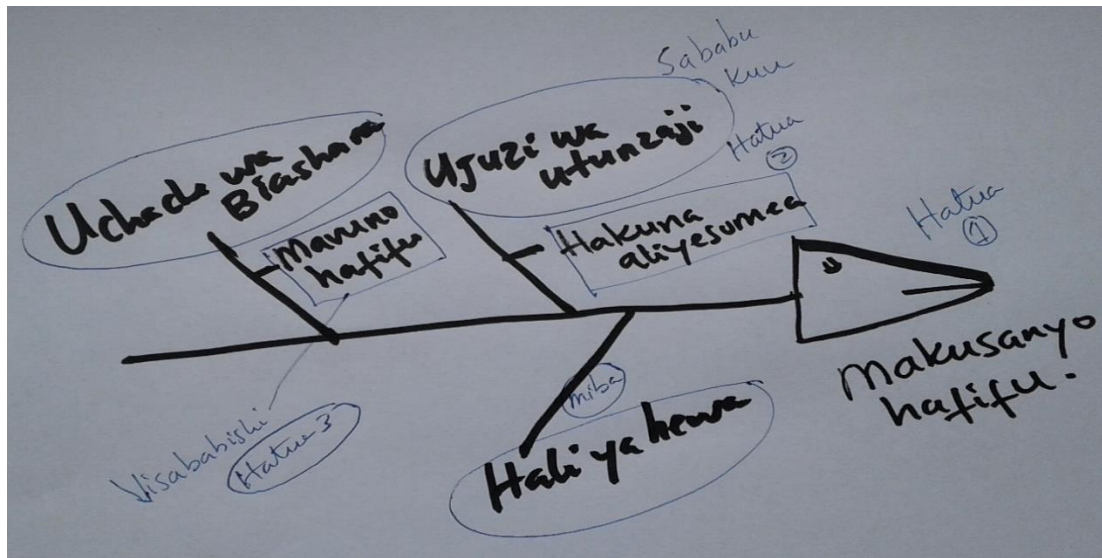 Sababu
kuu
Uchache wa
Biashara
Ujuzi wa
utunzaji
Hatua
2
Mavuno
hafifu
Hakuna
aliyesomea
Hatua
1
Makusanyo
hafifu.
miba
Hali ya hewa
Visababishi
Hatua 3